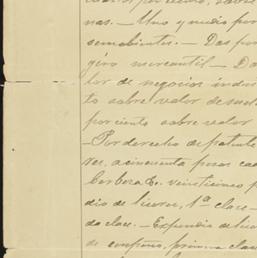 nas. — Uno y medio por
semovientes. — Dos por
giro mercantil —
lor de negocios
to sobre valor de
por ciento sobre valor
— Por derecho de patente
ces, a cincuenta pesos cada
Barbera &. veinticinco p
dio de licores, 1ª clase —
da clase. — Expendio de lico
de confeño, primera clase